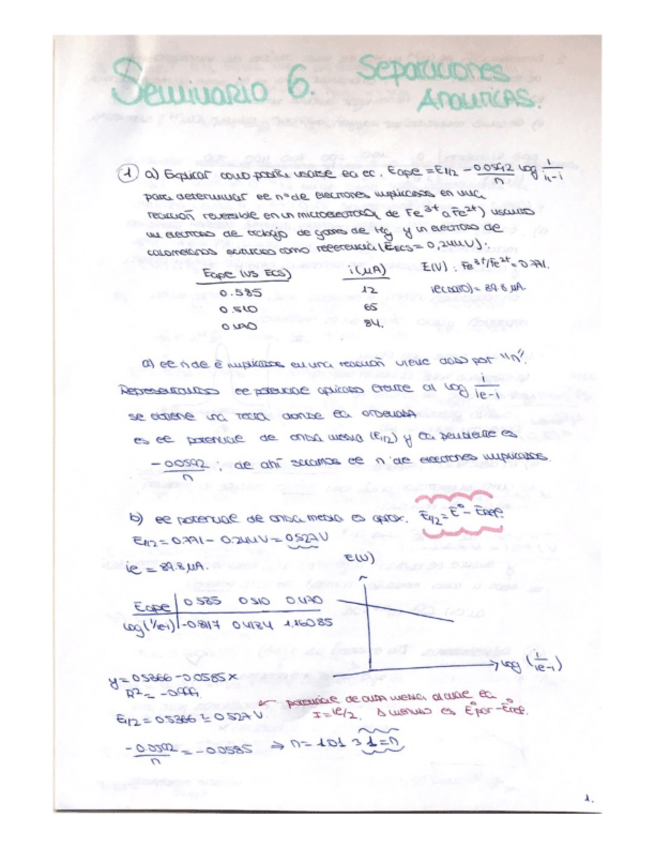 Seminario 6. Separaciones
Analíticas.
1 a) Explicar como podría usarse la ec. Eapl = E1/2 - 0.0592/n log i/il-i
para determinar el nº de electrones implicados en una
reacción reversible en un microelectrodo de Fe3+ a Fe2+) usando
un electrodo de trabajo de gotas de Hg y un electrodo de
calomelanos saturado como referencia (EECS = 0,244V):
Eapl (vs ECS) i (µA) E(V) : Fe3+/Fe2+ = 0.771.
0.585 12 il(cte) = 89.8 µA.
0.510 65
0.470 84.
a) el n de e implicados en una reacción viene dado por "n".
Representando el potencial aplicado frente al log i/il-i
se obtiene una recta donde la ordenada
es el potencial de onda media (E1/2) y la pendiente es
-0.0592/n ; de ahí sacamos el nº de electrones implicados.
b) el potencial de onda media es aprox. E1/2 = E° - Eref.
E1/2 = 0.771 - 0.244 V = 0.527 V
il = 89.8 µA. E(V)
Eapl 0.585 0.510 0.470
log(i/il-i) -0.817 0.4184 1.16085
log (i/il-i)
y = 0.5366 - 0.0585 x
R2 = -0.999.
E1/2 = 0.5366 ≅ 0.527 V
potencial de onda media cuando la
I = il/2. Δ E°
-0.0592/n = -0.0585 ⇒ n = 1.01 1 = n
1.